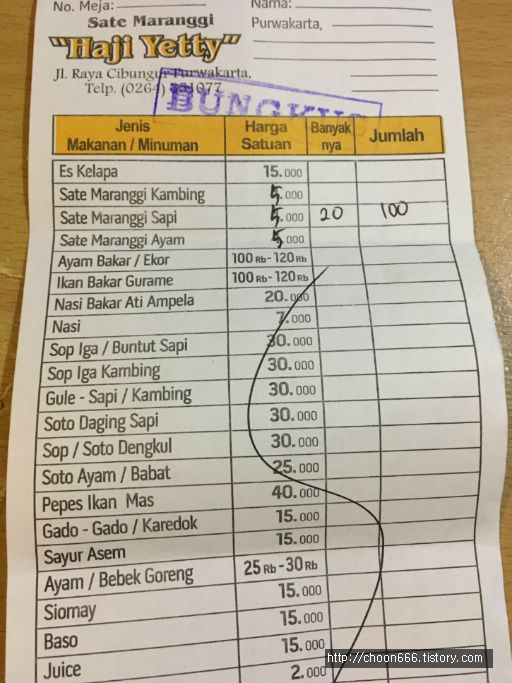 No. Meja:
Nama:
Sate Maranggi
Purwakarta,
"Haji Yetty"
Jl. Raya Cibungur Purwakarta,
Telp. (0264)
BUNGKUS
Jenis Makanan / Minuman Harga Satuan Banyak nya Jumlah
Es Kelapa 15.000
Sate Maranggi Kambing 5.000
Sate Maranggi Sapi 5.000 20 100
Sate Maranggi Ayam 5.000
Ayam Bakar / Ekor 100 Rb - 120 Rb
Ikan Bakar Gurame 100 Rb - 120 Rb
Nasi Bakar Ati Ampela 20.000
Nasi 7.000
Sop Iga / Buntut Sapi 30.000
Sop Iga Kambing 30.000
Gule - Sapi / Kambing 30.000
Soto Daging Sapi 30.000
Sop / Soto Dengkul 30.000
Soto Ayam / Babat 25.000
Pepes Ikan Mas 40.000
Gado - Gado / Karedok 15.000
Sayur Asem 15.000
Ayam / Bebek Goreng 25 Rb - 30 Rb
Siomay 15.000
Baso 15.000
Juice 15.000
2.000
http://choon666.tistory.com